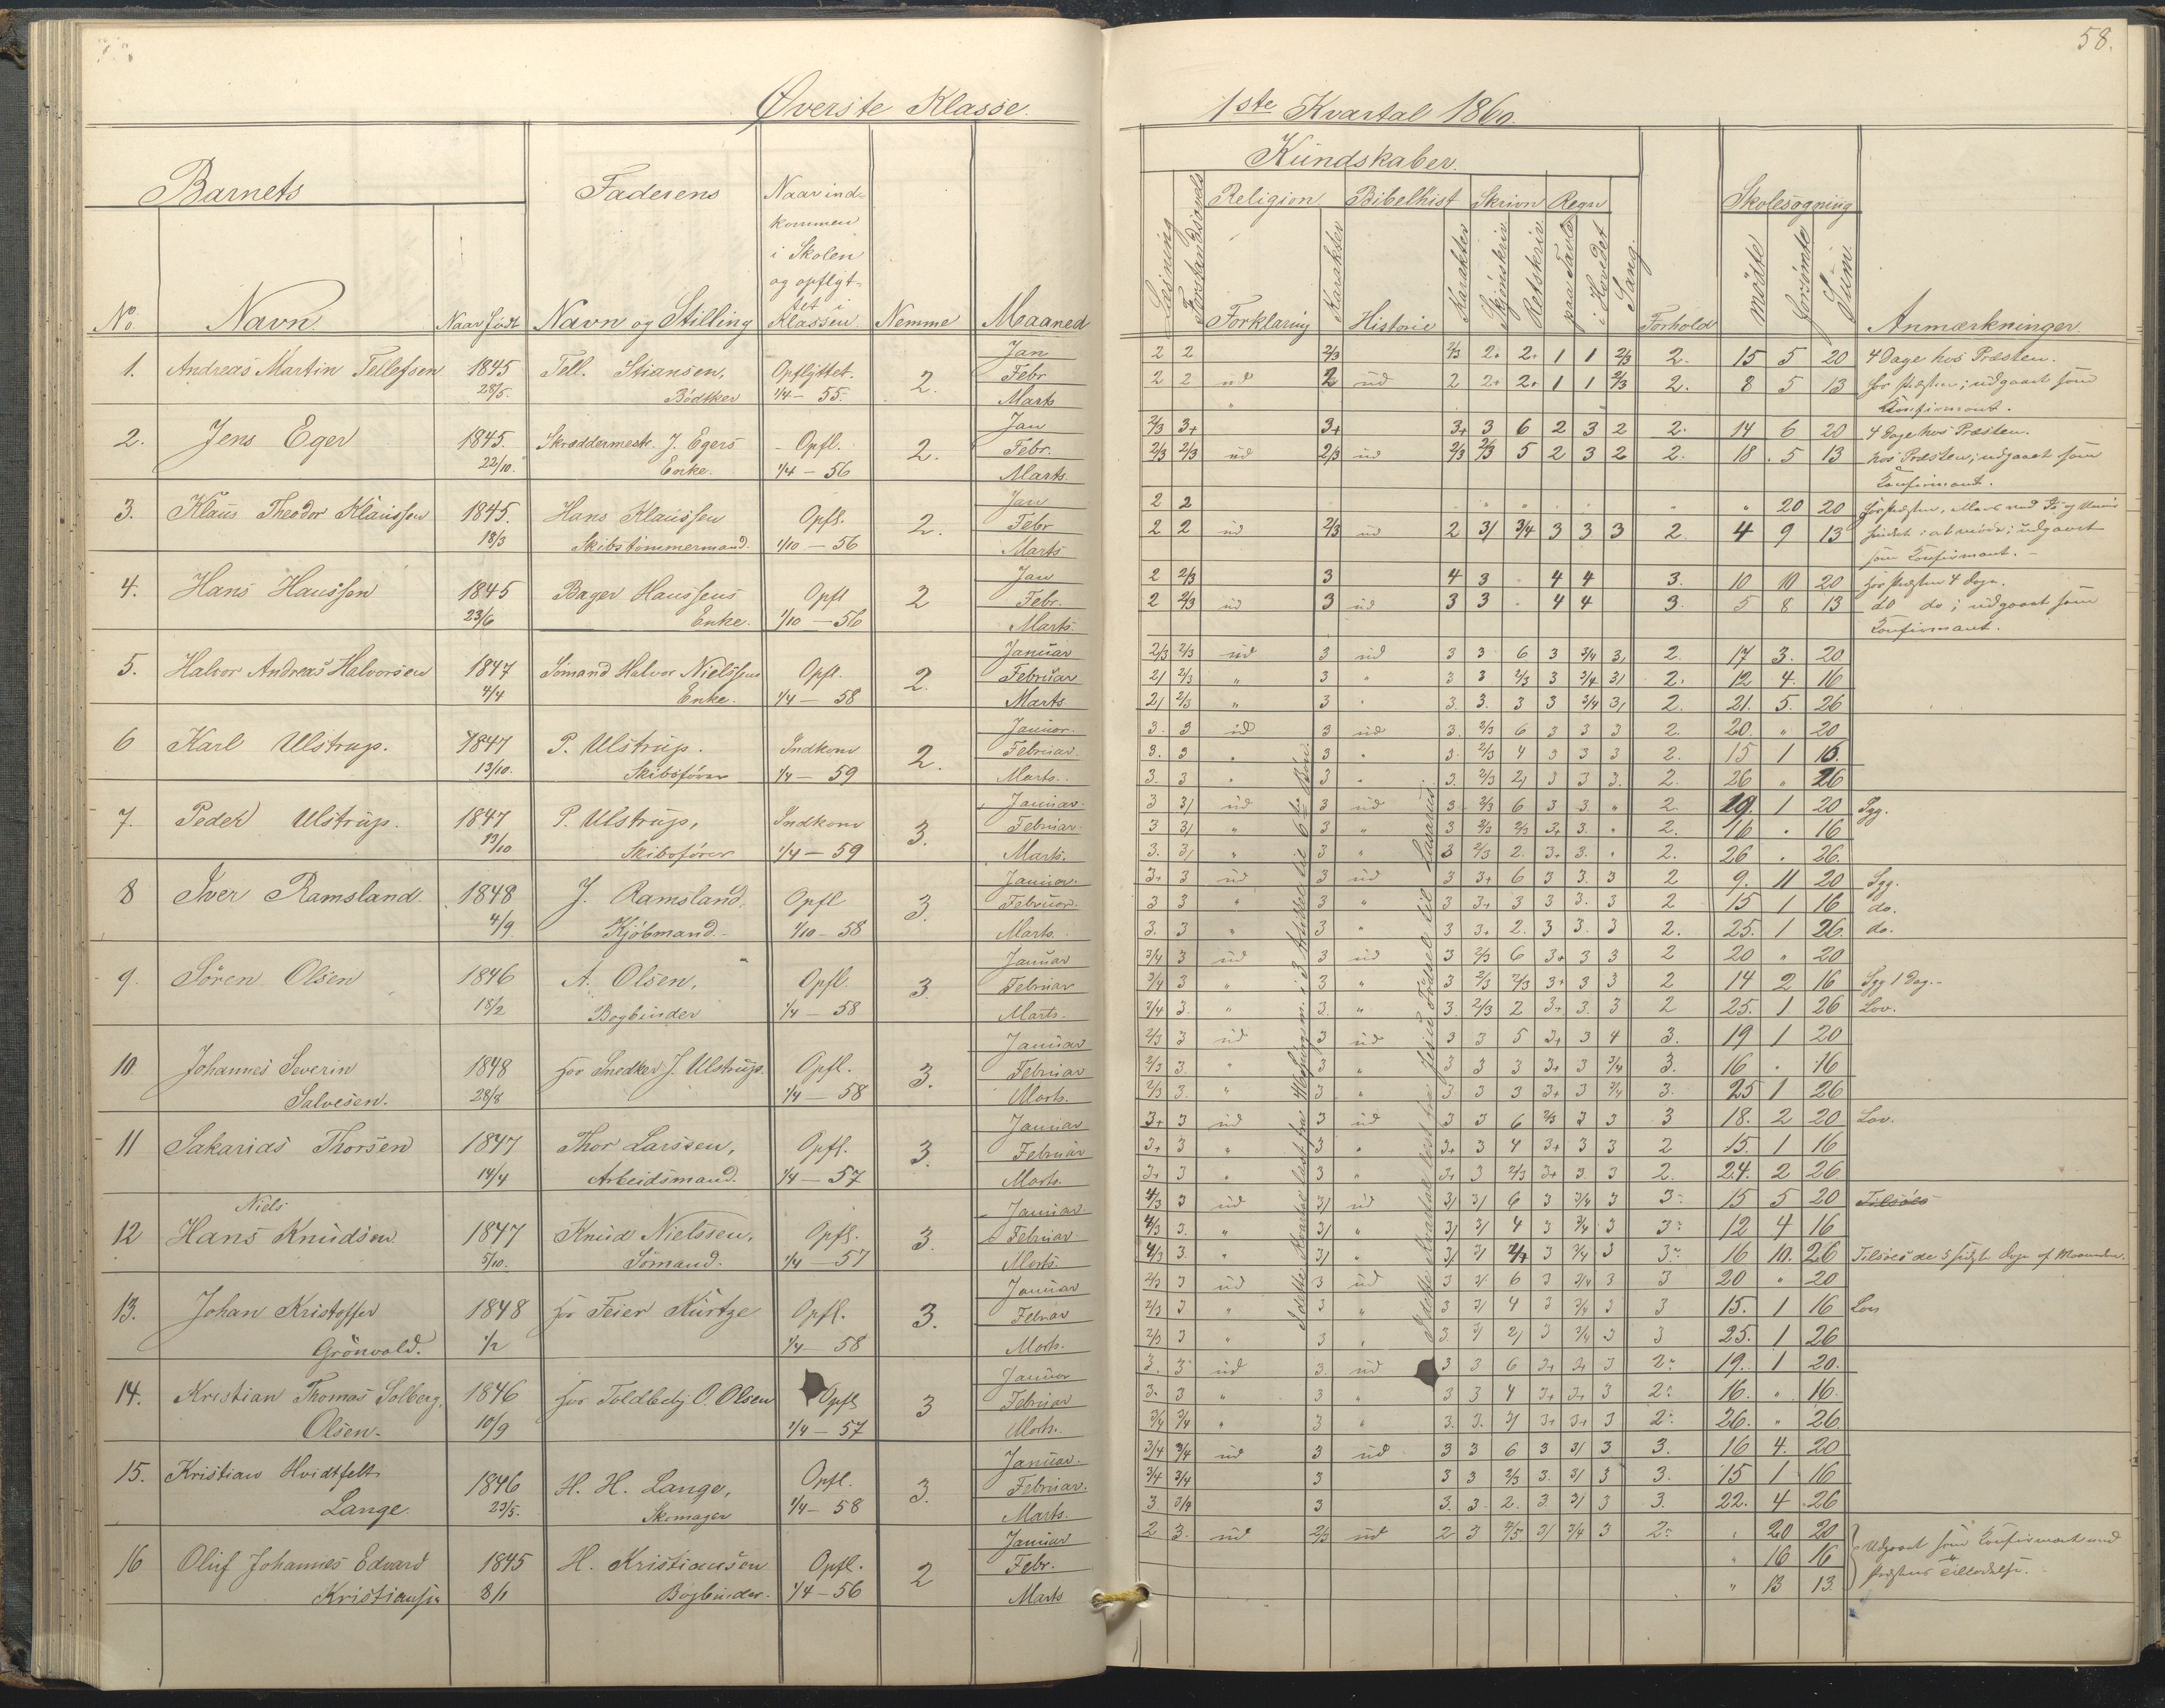 58.
Øverste Klasse.
1ste Kvartal 1860.
Barnets
Faderens
Naar ind-
kommen
i Skolen
og opflyt-
tet i
Klassen.
No.
Navn.
Naar født
Navn og Stilling
Nemme
Maaned
Kundskaber.
Læsning
Forstandsøvels
Religion
Bibelhist
Skrivn
Regn
Forklaring
Karakter
Historie
Karakter
Skjönskriv
Retskriv
paa Tavle
i Hovedet
Sang.
Forhold
Skolesøgning
mödte
forsömte
Sum.
Anmærkninger.
1. Andreas Martin Tellefsen 1845 Tell. Stiansen, Opflyttet. 2. Jan
28/5. Bödtker 1/4 - 55. Febr
Marts
2 2 2/3 2/3 2+ 2+ 1 1 2/3 2. 15 5 20 4 Dage hos Præsten.
2 2 ud 2 ud 2 2+ 2+ 1 1 2/3 2. 8 5 13 for Præsten; udgaaet som
Konfirmant.
2. Jens Eger 1845. Skræddermestr. J. Egers Opfl. 2. Jan
22/10. Enke. 1/4 - 56 Febr.
Marts.
2/3 3+ 3+ 3+ 3 6 2 3 2 2. 14 6 20 4 Dage hos Præsten.
2/3 2/3 ud 2/3 ud 2/3 2/3 5 2 3 2 2. 18 5 13 hos Præsten; udgaaet som
Konfirmant.
3. Klaus Theodor Klaussen 1845. Hans Klaussen Opfl. 2. Jan
18/3 Skibstömmermand. 1/10 - 56 Febr
Marts
2 2 " 20 20
2 2 ud 2/3 ud 2 3/ 3/4 3 3 3 2. 4 9 13 udgaaet
som Konfirmant.
4. Hans Hanssen 1845 Bager Hanssens Opfl 2 Jan
23/6 Enke. 1/10 - 56 Febr.
Marts.
2 2/3 3 4 3 4 4 3. 10 10 20 for Præsten 4 Dage.
2 2/3 ud 3 ud 3 3 . 4 4 3. 5 8 13 do do; udgaaet som
Konfirmant.
5. Halvor Andreas Halvorsen 1847 Sömand Halvor Nielssens Opfl. 2. Januar
4/4 Enke. 1/4 - 58 Februar
Marts
2/3 2/3 ud 3 ud 3 3 6 3 3/4 3/ 2. 17 3. 20
2/ 2/3 " 3 " 3 3 2/3 3 3/4 3/ 2. 12 4. 16
2/ 2/3 " 3 " 3. 3. 3 3 3/4 3/ 2. 21. 5. 26
6 Karl Ulstrup. 1847 P. Ulstrup. Indkom 2. Januar.
13/10. Skibsfører 1/4 - 59 Februar.
Marts.
3. 3 ud 3 ud 3. 2/3 6 3 3 3 2. 20. " 20
3. 3 " 3 " 3. 2/3 4 3 3 3 2. 15 1 16.
3. 3 " 3 " 3. 2/3 2/ 3 3 3. 2. 26 " 26
7. Peder Ulstrup. 1847 P. Ulstrup, Indkom 3. Januar.
13/10 Skibsfører 1/4 - 59 Februar.
Marts.
3 3/ ud 3 ud 3 2/3 6 3 3 " 2. 19. 1 20 Syg.
3 3/ " 3 " 3 2/3 2/3 3+ 3. " 2. 16 " 16
3. 3/ " 3 " 3 2/3 2. 3+ 3. " 2. 26 . 26.
8 Iver Ramsland. 1848 J. Ramsland, Opfl 3. Januar.
4/9 Kjöbmand. 1/10 - 58 Februar.
Marts
3+ 3 ud 3 ud 3 3+ 6 3 3. 3 2 9. 11 20 Syg.
3 3 " 3 " 3 3+ 3 3 3. 3 2 15 1 16 do.
3. 3 " 3 " 3 3+ 2. 3 3. 3 2. 25. 1 26. do.
9. Sören Olsen 1846 A. Olsen, Opfl. 3. Januar
18/2 Bogbinder 1/4 - 58 Februar
Marts.
3/4 3 ud 3 ud 3 2/3 6 3+ 3 3 2 20 " 20
3/4 3 " 3 " 3 2/3 2/3 3+ 3 3 2 14 2 16 Syg 1 Dag.
3/4 3. " 3. " 3. 2/3 2 3+ 3. 3 2 25. 1 26 Lov.
10 Johannes Severin 1848 for Snedker J. Ulstrup. Opfl. 3. Januar
Salvesen. 28/8 1/4 - 58 Februar
Marts.
2/3 3 ud 3 ud 3 3 5 3+ 3 4 3. 19 1 20
2/3 3. " 3 " 3 3 3 3+ 3 3/4 3. 16 . 16
2/3 3. " 3 " 3 3 3 3+ 3 3/4 3. 25 1 26
11 Sakarias Thorsen 1847 Thor Larssen, Opfl. 3. Januar
14/4 Arbeidsmand. 1/4 - 57 Februar
Marts.
3+ 3 ud 3 ud 3 3 6 2/3 3 3 3 18. 2 20 Lov.
3+ 3 " 3 " 3+ 3 4 3+ 3 3 2 15. 1 16
3+ 3 " 3 " 3+ 3 2/3 3+ 3. 3 2. 24. 2 26
Niels
12 Hans Knudsen 1847 Knud Nielssen, Opfl. 3. Januar
5/10. Sömand. 1/4 - 57 Februar
Marts.
4/3 3 ud 3/ ud 3/ 3/ 6 3 3/4 3 3 15 5 20 Tilsöes
4/3 3. " 3/ " 3/ 3/ 4 3 3/4 3 3 12 4 16
4/3 3. " 3/ " 3/ 3/ 3 3/4 3 3 16 10. 26 Tilsöes de 5 sidste Dage af Maaneden.
13. Johan Kristoffer 1848 for Feier Kürtze Opfl. 3. Januar
Grönvold. 1/2 1/4 58 Februar
Marts.
2/3 3 ud 3 ud 3 3/ 6 3 3/4 3 3 20 " 20
2/3 3 " 3 " 3 3/ 4 3 3/4 3 3 15. 1 16 Lov
2/3 3 " 3 " 3. 3/ 2/ 3 3/4 3 3 25. 1 26
14. Kristian Thomas Solberg, 1846 for Toldbetj O. Olsen Opfl 3 Januar
Olsen. 10/9 1/4 - 57 Februar
Marts.
3. 3 ud 3. ud 3 3 6 3+ 3+ 3 2 19. 1 20.
3. 3 " 3 " 3 3 4 3+ 3+ 3 2 16. " 16.
3/4 3/4 " 3 " 3. 3. 3/ 3+ 3+ 3 2 26. " 26
15. Kristian Hvidtfelt 1846 H. H. Lange, Opfl. 3. Januar.
Lange. 23/5. Skomager 1/4 - 58 Februar.
Marts.
3/4 3/4 ud 3 ud 3 3 6 3 3/ 3 3. 16 4. 20
3/4 3/4 3 3 3 2/3 3. 3/ 3 3. 15 1 16
3 3/4 3 3. 3. 2. 3. 3/ 3 3. 22. 4 26
16 Oluf Johannes Edvard 1845 H. Kristiansen Opfl. 2 Januar
Kristiansen 8/1 Bogbinder. 1/4 - 56 Febr.
Marts
2 3. ud 2/3 ud 2 3 3/ 3/4 3 2 " 20 20 Udgaaet som Konfirmant med
" 16 16 Præstens Tilladelse.
" 13 13.
I dette Kvartal læst fra til 6te Bön.
I dette Kvartal læst fra Jesu Födsel til Lasarus.